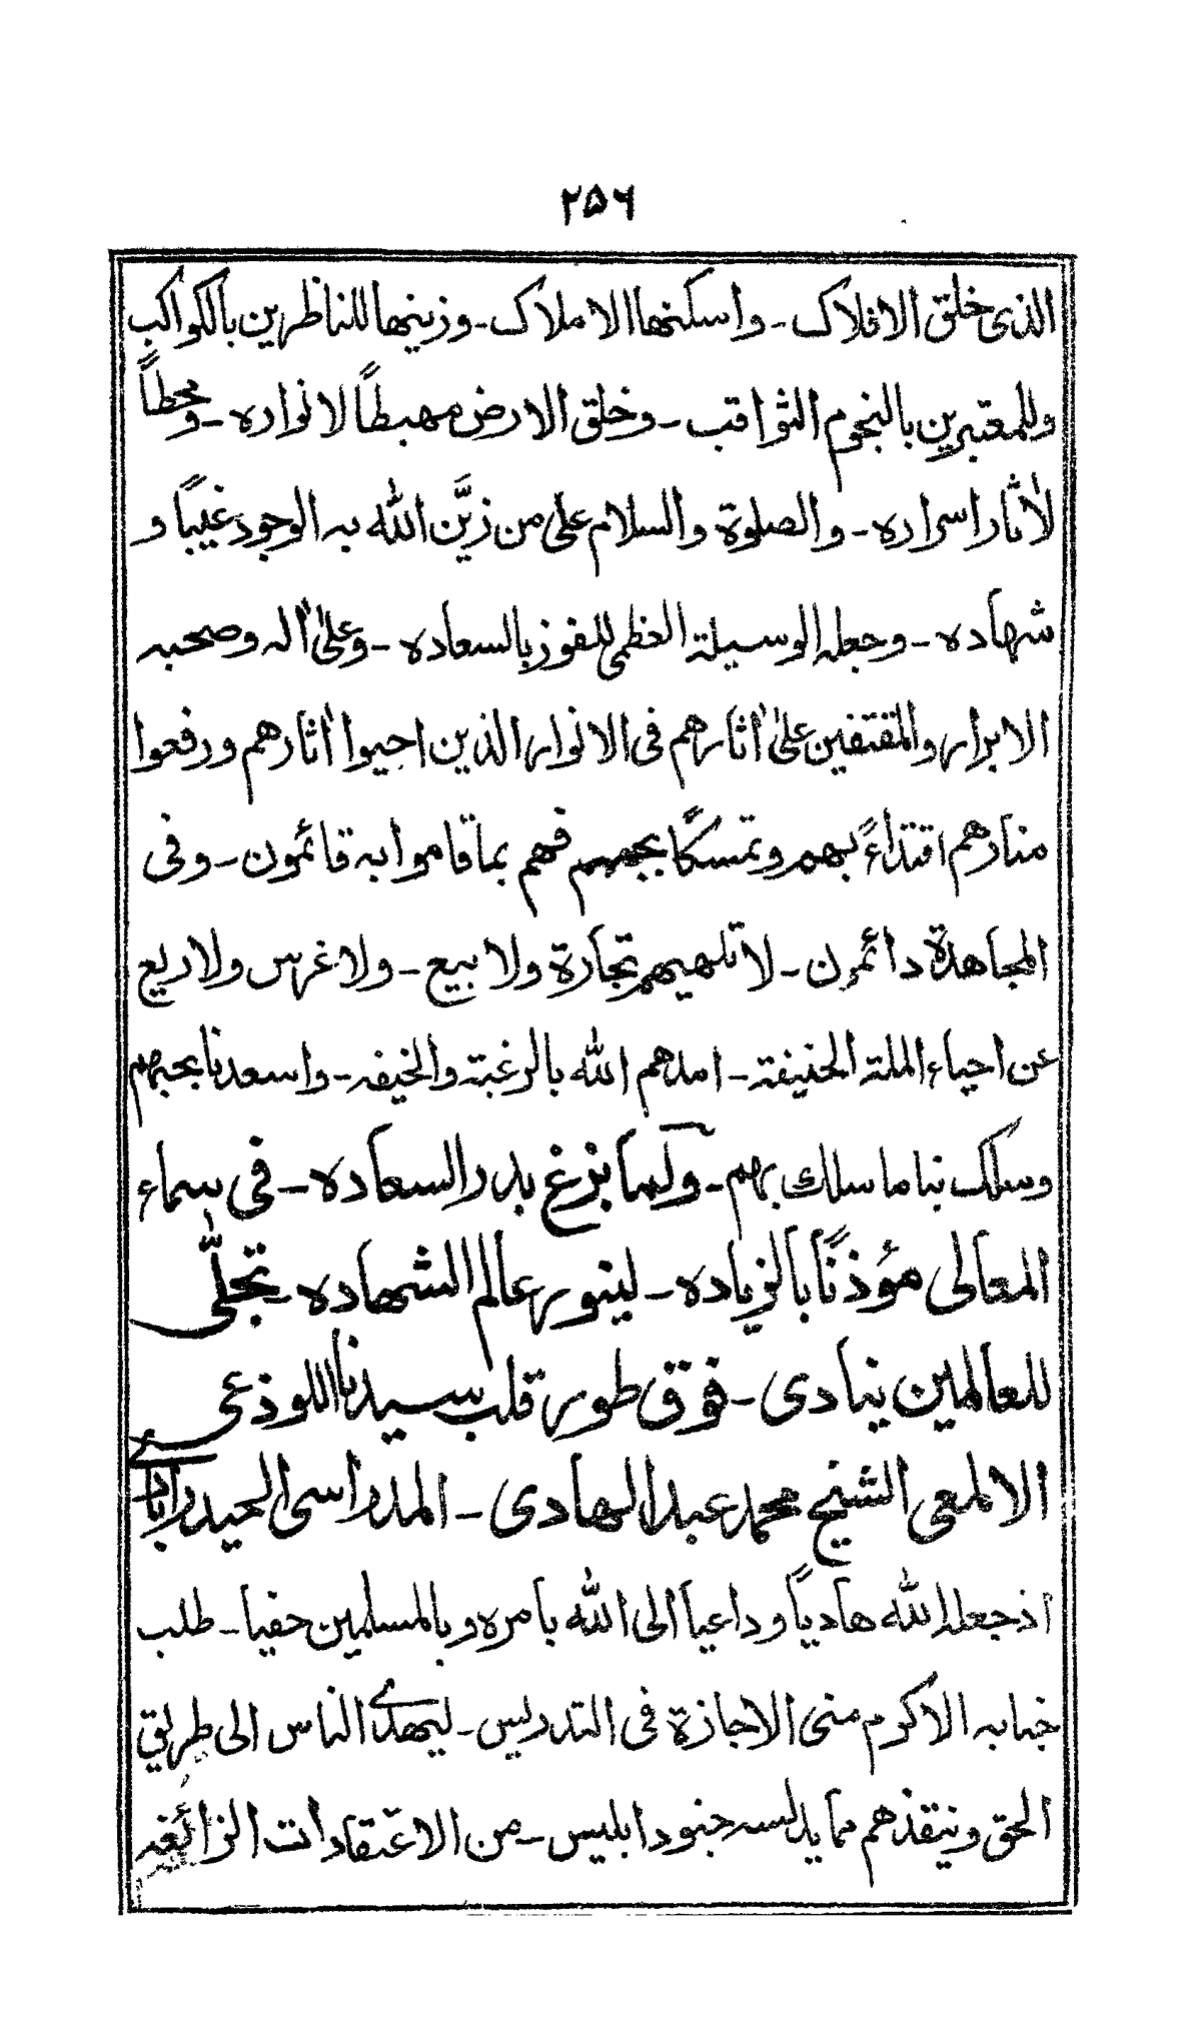 ۲۵۶
الذی خلق الافلاک ـ واسکنھا الاملاک ـ وزینھا للناظرین بالکواکب
وللمعتبرین بالنجوم الثواقب ـ وخلق الارض مھبطاً لانوارہ ـ ومحطاً
لاٰثار اسرارہ ـ والصلوة والسلام علی من زیَّن اللہ بہ الوجود غیبًا و
شھادہ ـ وجعلہ الوسیلة العظمی للفوز بالسعادہ ـ وعلیٰ اٰلہ وصحبہ
الابرار والمقتفین علیٰ اٰثارھم فی الانوار الذین احیوا اٰثارھم ورفعوا
منارھم اقتداءً بھم وتمسکًا بحبھم فھم بما قاموا بہ قائمون ـ وفی
المجاھدة دائمون ـ لا تلھیھم تجارة ولا بیع ـ ولا غرس ولا ریع
عن احیاء الملة الحنیفة ـ امدھم اللہ بالرغبة والخیفہ ـ واسعدنا بحبھم
وسلک بنا ما سلک بھم ـ ولما بزغ بدر السعادہ ـ فی سماء
المعالی مؤذنًا بالزیادہ ـ لینور عالم الشھادہ ـ تجلّٰی
للعالمین ینادی ـ فوق طور قلب سیدنا اللوذعی
الالمعی الشیخ محمد عبد الھادی ـ المدراسی الحیدراٰبادی
اذ جعلہ اللہ ھادیاً وداعیاً الی اللہ بامرہ وبالمسلمین حفیا ـ طلب
جنابہ الاکرم منی الاجازة فی التدریس ـ لیھدی الناس الی طریق
الحق وینقذھم مما یدلسہ جنود ابلیس ـ من الاعتقادات الزائغہ